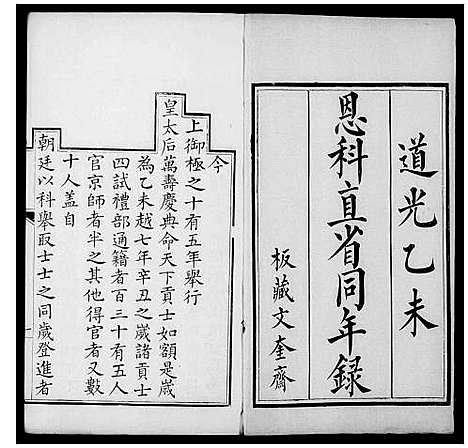 道光乙未
恩科直省同年錄
板藏文奎齋
今
上御極之十有五年舉行
皇太后萬壽慶典命天下貢士如額是歲
為乙未越七年辛丑之歲諸貢士
四試禮部通籍者百三十有五人
官京師者半之其他得官者又數
十人蓋自
朝廷以科舉取士士之同歲登進者